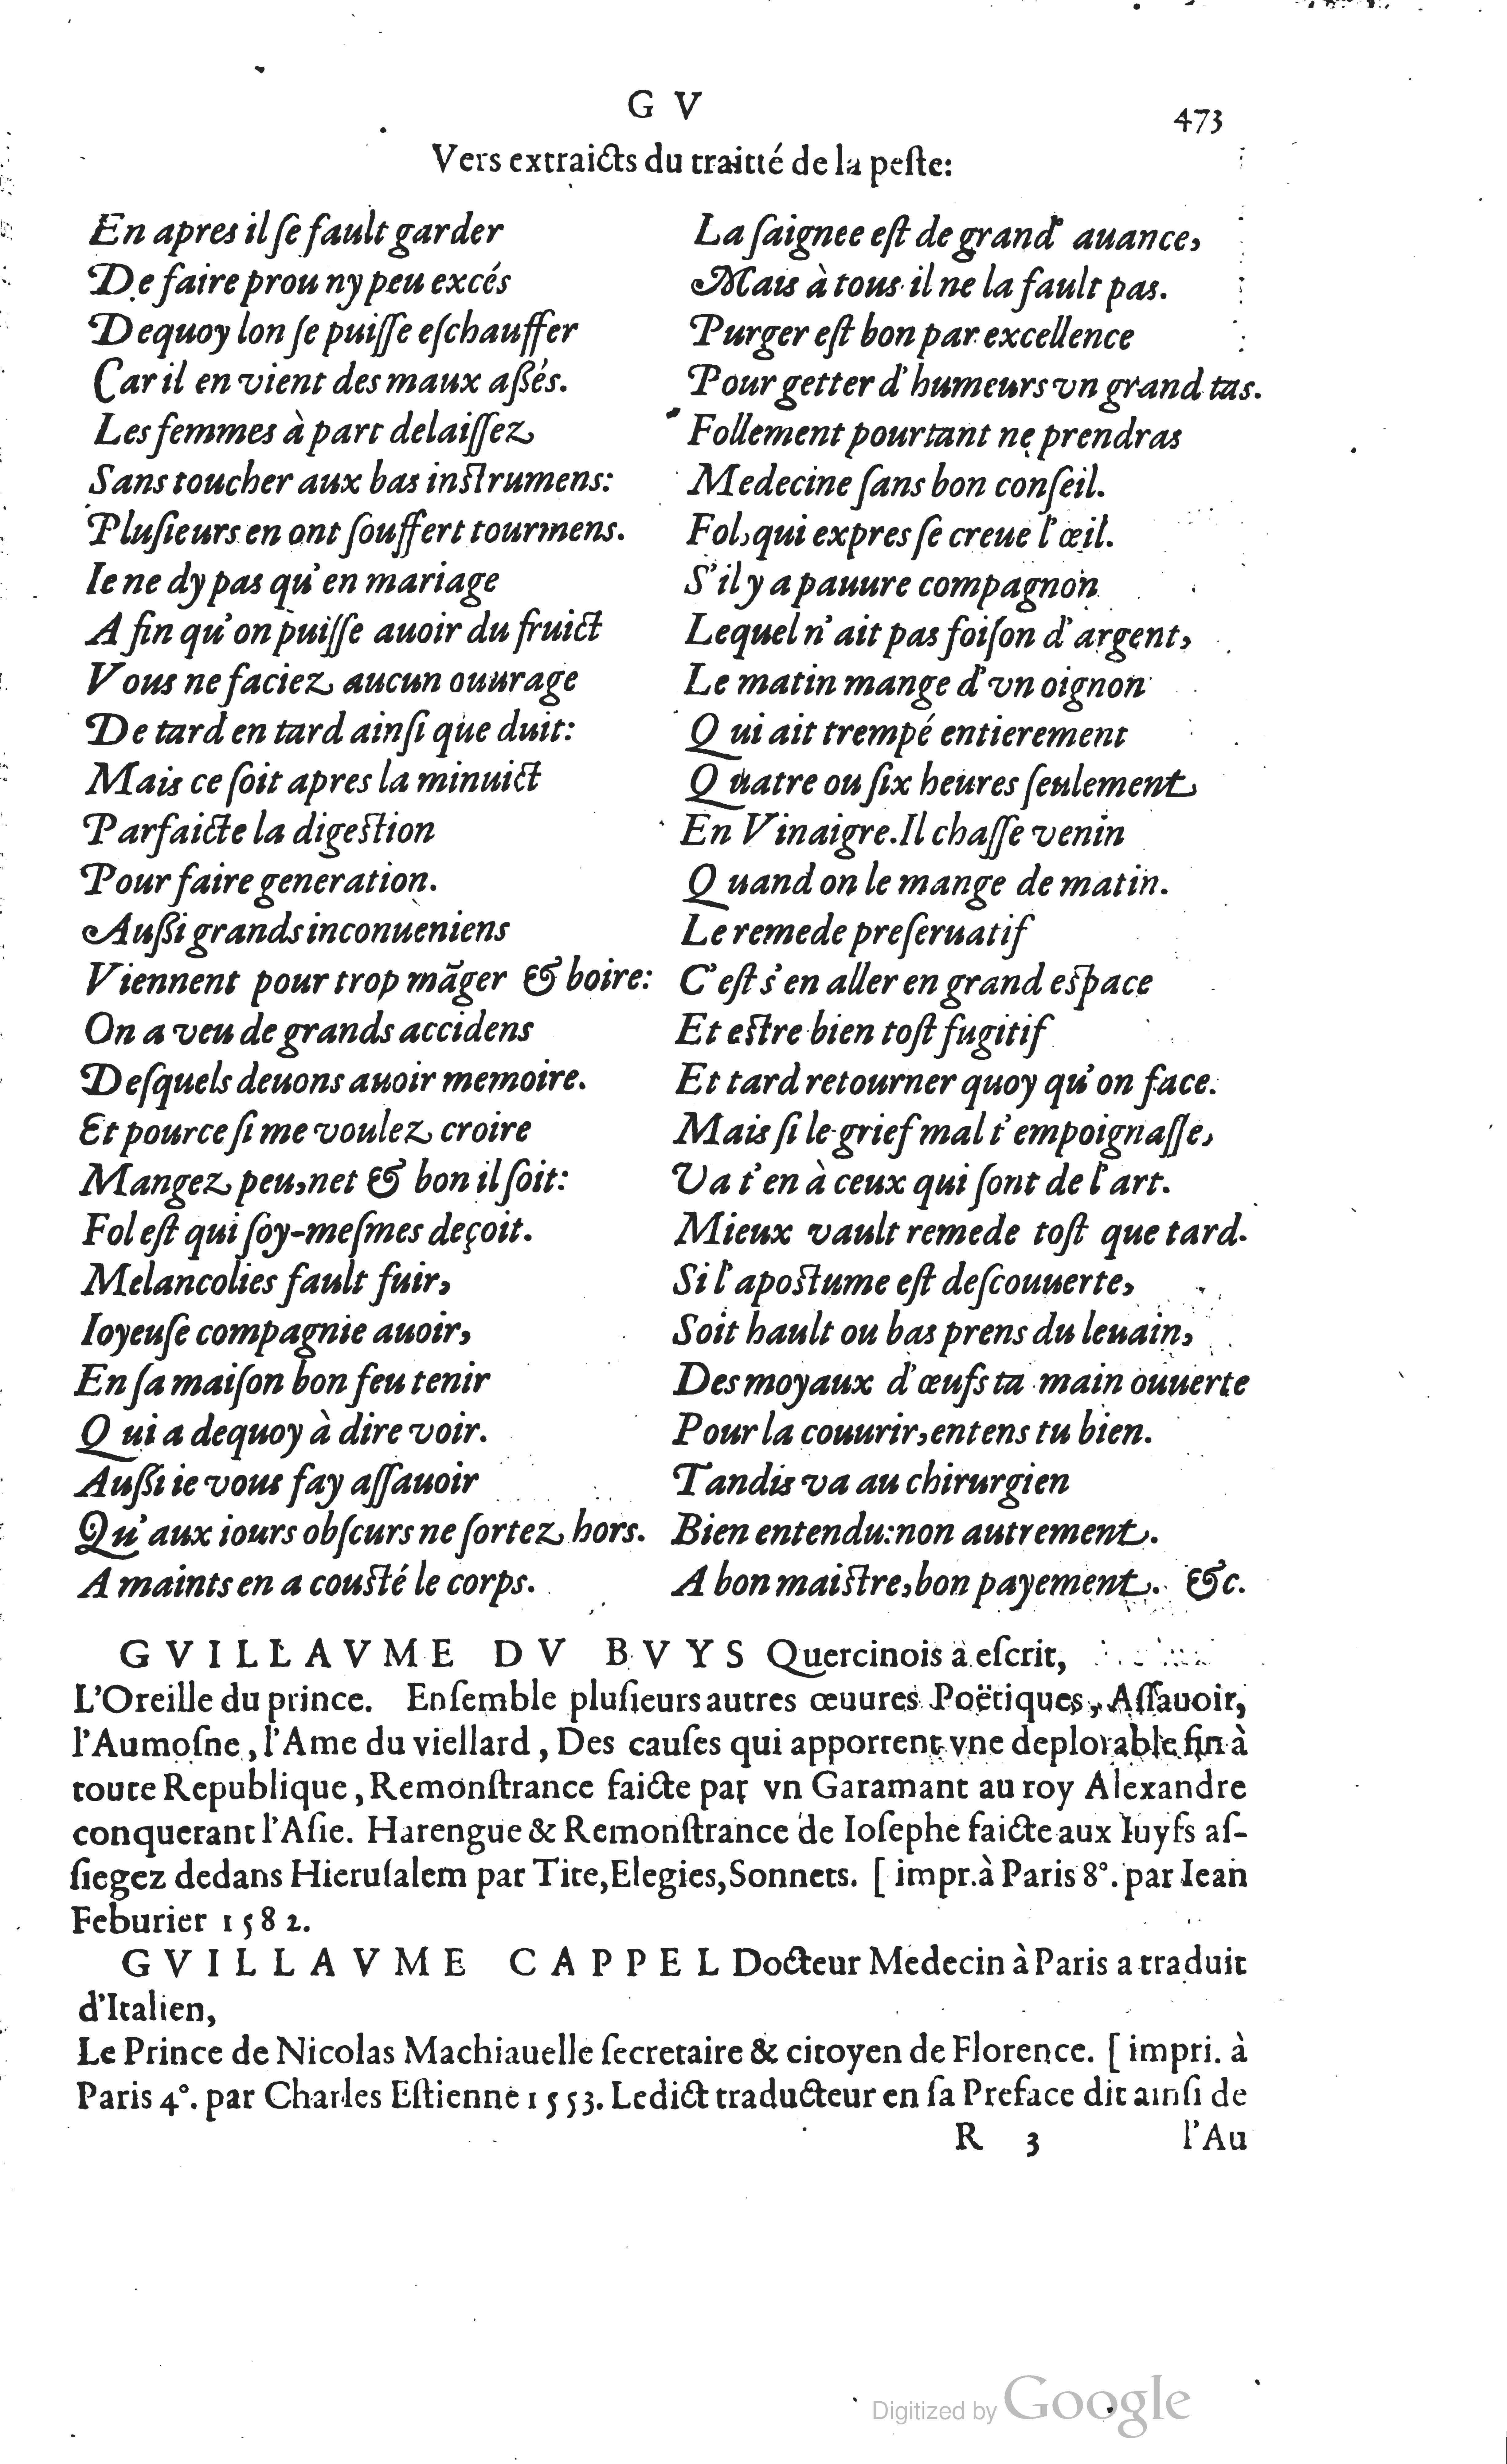 G V
473
Vers extraicts du traitté de la peſte:
En apres il ſe fault garder
De faire prou ny peu excés
Dequoy lon ſe puiſſe eſchauffer
Car il en vient des maux aßés.
Les femmes à part delaiſſez
Sans toucher aux bas inſtrumens:
Pluſieurs en ont ſouffert tourmens.
Ie ne dy pas qu'en mariage
A fin qu'on puiſſe auoir du fruict
Vous ne faciez aucun ouurage
De tard en tard ainſi que duit:
Mais ce ſoit apres la minuict
Parfaicte la digeſtion
Pour faire generation.
Außi grands inconueniens
Viennent pour trop mãger & boire:
On a veu de grands accidens
Deſquels deuons auoir memoire.
Et pource ſi me voulez croire
Mangez peu, net & bon il ſoit:
Fol eſt qui ſoy-meſmes deçoit.
Melancolies fault fuir,
Ioyeuſe compagnie auoir,
En ſa maiſon bon feu tenir
Qui a dequoy à dire voir.
Außi ie vous fay aſſauoir
Qu'aux iours obſcurs ne ſortez hors.
A maints en a couſté le corps.
La ſaignee eſt de grand' auance,
Mais à tous il ne la fault pas.
Purger eſt bon par excellence
Pour getter d'humeurs vn grand tas.
Follement pourtant ne prendras
Medecine ſans bon conſeil.
Fol, qui expres ſe creue l'œil.
S'il y a pauure compagnon
Lequel n'ait pas foiſon d'argent,
Le matin mange d'vn oignon
Qui ait trempé entierement
Quatre ou ſix heures ſeulement
En Vinaigre. Il chaſſe venin
Quand on le mange de matin.
Le remede preſeruatif
C'eſt s'en aller en grand eſpace
Et eſtre bien toſt fugitif
Et tard retourner quoy qu'on face.
Mais ſi le grief mal t'empoignaſſe,
Va t'en à ceux qui ſont de l'art.
Mieux vault remede toſt que tard.
Si l'apoſtume eſt deſcouuerte,
Soit hault ou bas prens du leuain,
Des moyaux d'œufs ta main ouuerte
Pour la couurir, entens tu bien.
Tandis va au chirurgien
Bien entendu: non autrement.
A bon maiſtre, bon payement. &c.
GVILLAVME DV BVYS Quercinois a eſcrit,
L'Oreille du prince. Enſemble pluſieurs autres œuures Poëtiques, Aſſauoir,
l'Aumoſne, l'Ame du viellard, Des cauſes qui apportent vne deplorable fin à
toute Republique, Remonſtrance faicte par vn Garamant au roy Alexandre
conquerant l'Aſie. Harengue & Remonſtrance de Ioſephe faicte aux Iuyfs aſ-
ſiegez dedans Hieruſalem par Tite, Elegies, Sonnets. [ impr. à Paris 8°. par Iean
Feburier 1582.
GVILLAVME CAPPEL Docteur Medecin à Paris a traduit
d'Italien,
Le Prince de Nicolas Machiauelle ſecretaire & citoyen de Florence. [ impri. à
Paris 4°. par Charles Eſtienne 1553. Ledict traducteur en ſa Preface dit ainſi de
R 3
l'Au
Digitized by Google